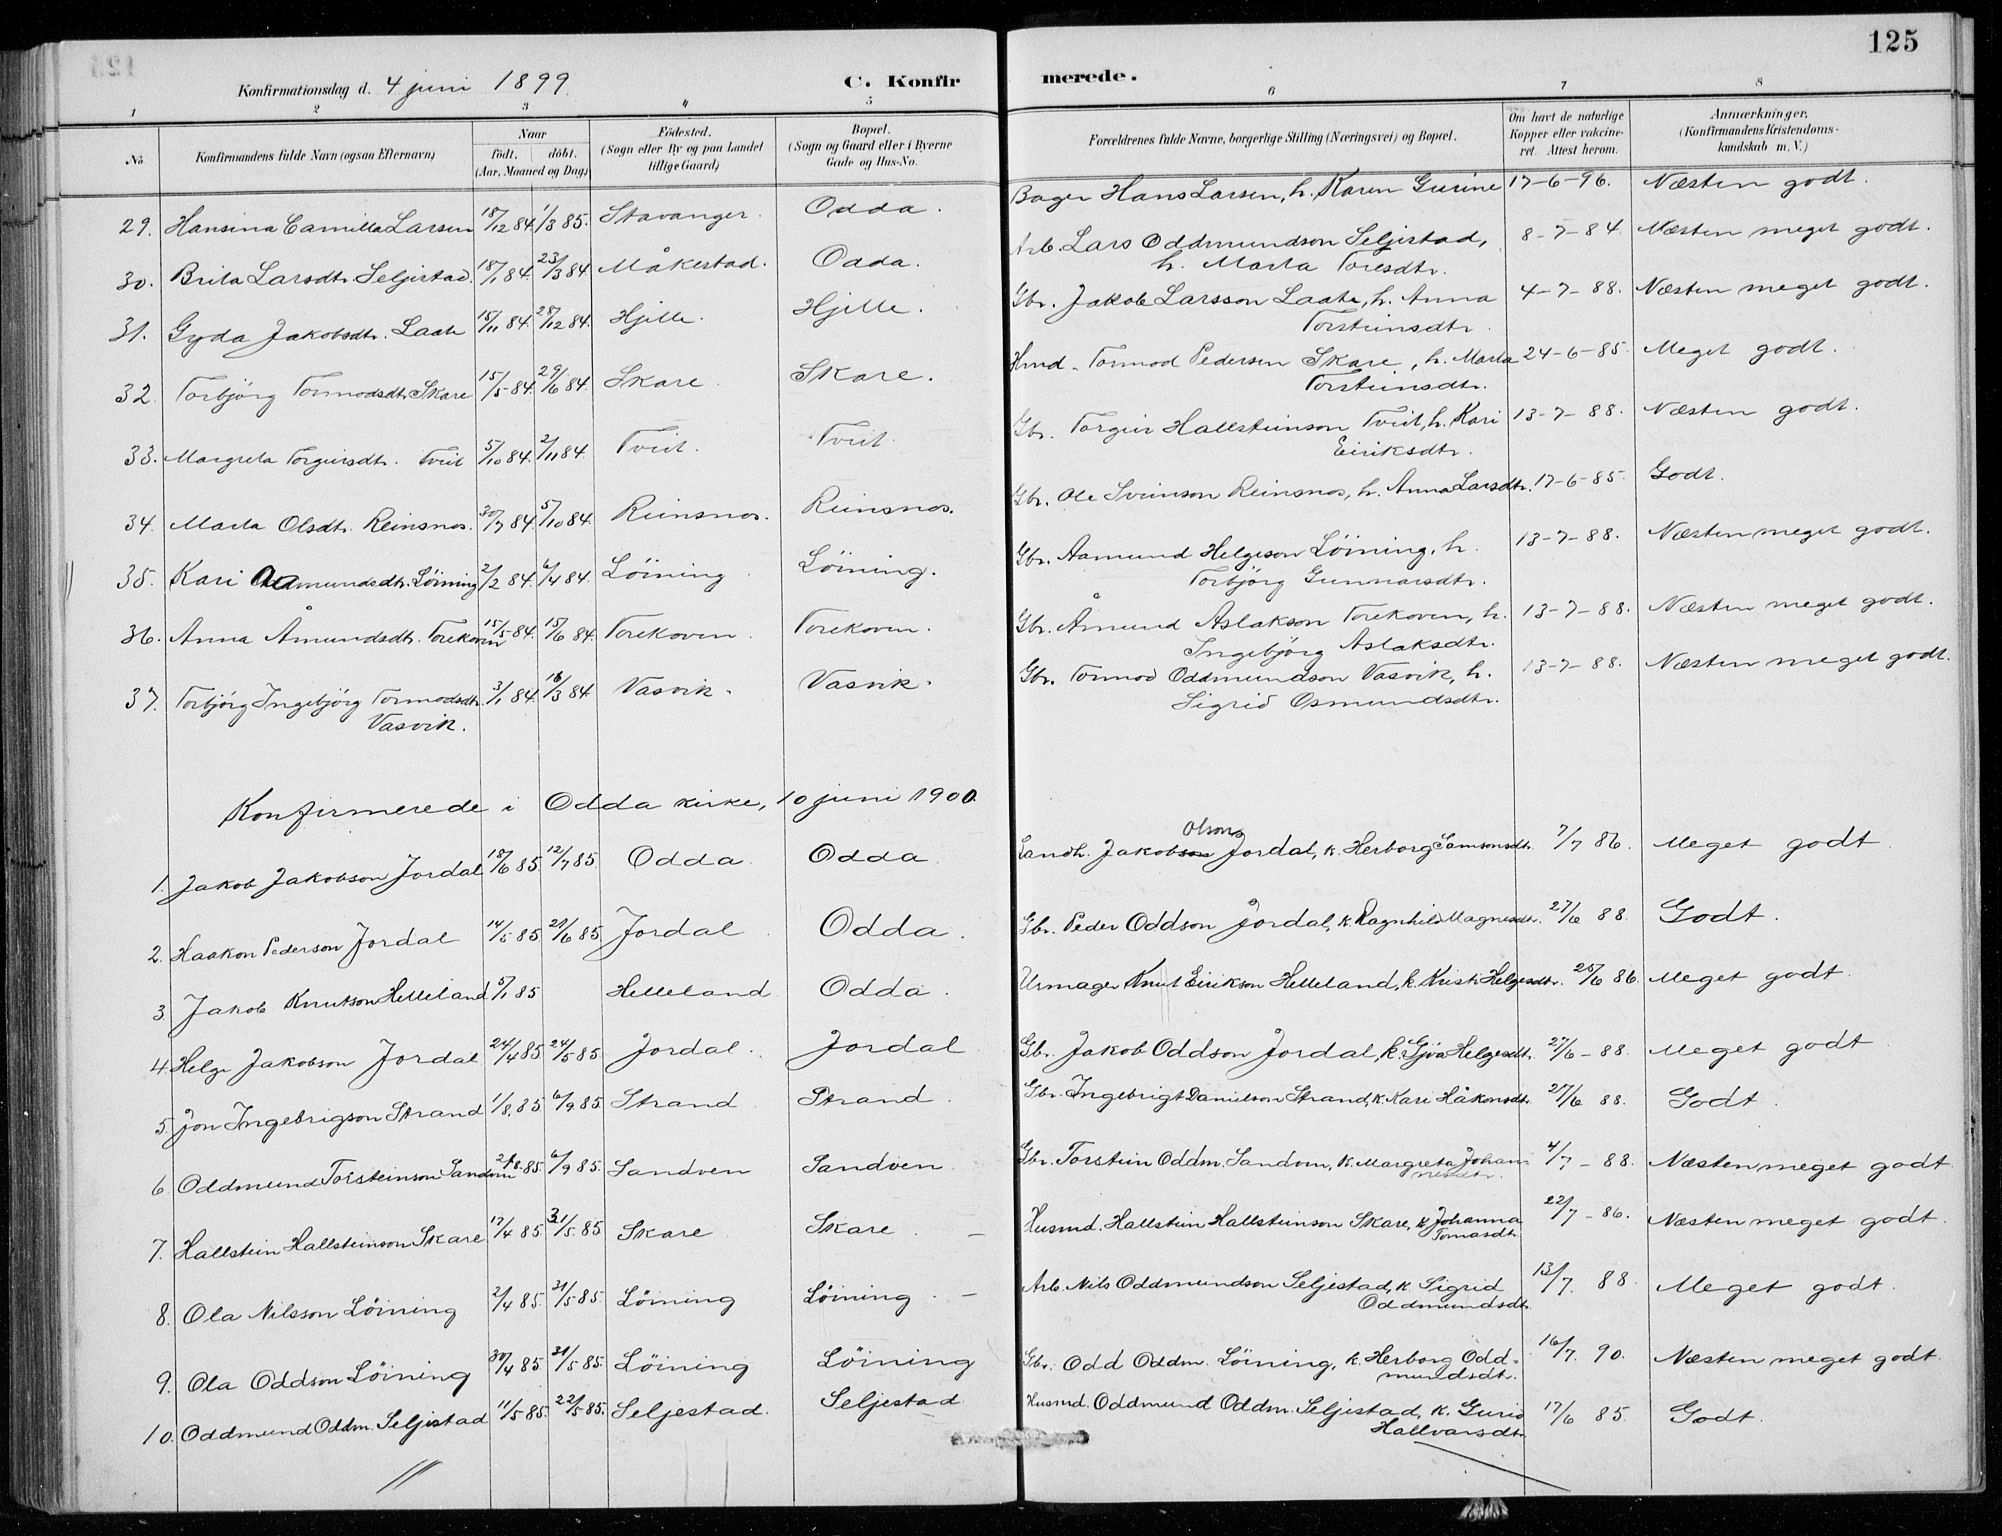 125
Konfirmationsdag d. 4 juni 1899.
C. Konfirmerede.
1 2 3 4 5 6 7 8
No. Konfirmandens fulde Navn (ogsaa Efternavn) Naar født. døbt. (Aar, Maaned og Dag) Fødested. (Sogn eller By og paa Landet tillige Gaard) Bopæl. (Sogn og Gaard eller i Byerne Gade og Hus-No. Forældrenes fulde Navne, borgerlige Stilling (Næringsvei) og Bopæl. Om havt de naturlige Kopper eller vakcineret. Attest herom. Anmærkninger. (Konfirmandens Kristendomskundskab m. V.)
29. Hansina Camilla Larsen 18/12 84. 1/3 85. Stavanger. Odda. Bager Hans Larsen, h. Karen Gurine 17-6-96. Næsten godt.
30. Brita Larsdtr. Seljestad. 18/1 84. 23/3 84. Måkestad. Odda. Arb. Lars Oddmundson Seljestad, h. Marta Toresdtr. 8-7-84. Næsten meget godt.
31. Gyda Jakobsdtr. Laate 15/11 84. 28/12 84. Hjelle. Hjelle. Gbr. Jakob Larsson Laate, h. Anna Torsteinsdtr. 4-7-88. Næsten meget godt.
32. Torbjörg Tormodsdtr. Skare 15/5 84. 29/6 84. Skare. Skare. Hmd. Tormod Pedersen Skare, h. Marta Torsteinsdtr. 24-6-85. Meget godt.
33. Margreta Torgeirsdtr. Tveit 5/10 84. 2/11 84. Tveit. Tveit. Gbr. Torgeir Hallsteinson Tveit, h. Kari Eiriksdtr. 13-7-88. Næsten godt.
34. Marta Olsdtr. Reinsnos. 30/7 84. 5/10 84. Reinsnos. Reinsnos. Gbr. Ole Sveinson Reinsnos, h. Anna Larsdtr. 17-6-85. Godt.
35. Kari Aamundsdtr. Löining 2/2 84. 6/4 84. Löining Löining. Gbr. Aamund Helgeson Löining, h. Torbjörg Gunnarsdtr. 13-7-88. Næsten meget godt.
36. Anna Åmundsdtr. Torekoven 15/5 84. 15/6 84. Torekoven. Torekoven. Gbr. Åmund Aslakson Torekoven, h. Ingebjörg Aslaksdtr. 13-7-88. Næsten meget godt.
37. Torbjörg Ingebjörg Tormodsdtr. Vasvik. 3/1 84. 16/3 84 Vasvik. Vasvik. Gbr. Tormod Oddmundson Vasvik, h. Sigrid Osmundsdtr. 13-7-88. Næsten meget godt.
Konfirmerede i Odda kirke, 10 juni 1900.
1. Jakob Jakobson Jordal 18/6 85. 12/7 85. Odda. Odda Landh. Jakobson Olsons Jordal, k. Herborg Samsonsdtr. 7/7 86. Meget godt
2. Haakon Pederson Jordal 14/5 85 21/6 85. Jordal Odda. Gbr. Peder Oddson Jordal, k. Ragnhild Magnesdtr. 27/6 88. Godt.
3. Jakob Knutson Helleland 5/1 85 Helleland Odda. Urmager Knut Eirikson Helleland, k. Kristi Helgesdtr. 25/6 86. Meget godt.
4. Helge Jakobson Jordal 24/4 85 24/5 85. Jordal. Jordal Gbr. Jakob Oddson Jordal, k. Gjöa Helgesdtr. 27/6-88. Meget godt
5. Jon Ingebrigson Strand 1/8 85 6/9 85. Strand Strand. Gbr. Ingebrigt Danielson Strand, k. Kari Håkonsdtr. 27/6 88. Godt.
6. Oddmund Torsteinson Sandven 2/8 85. 6/9 85. Sandven Sandven Gbr. Torstein Oddm. Sandven, k. Margreta Johannesdtr. 4/7-88. Næsten meget godt
7. Hallstein Hallsteinson Skare 17/4 85 31/5 85 Skare Skare. Husmd. Hallstein Hallsteinson Skare, k. Johanna Tomasdtr. 22/7-86. Næsten meget godt.
8. Ola Nilsson Löining 2/4 85. 31/5 85. Löining Löining. Arb. Nils Oddmundson Seljestad, k. Sigrid Oddmundsdtr. 13/7. 88. Meget godt.
9. Ola Oddson Löining 30/4 85. 31/5 85 Löining Löining Gbr. Odd Oddm. Löining, k. Herborg Oddmundsdtr. 16/7. 90. Næsten meget godt.
10. Oddmund Oddm. Seljestad 11/5 85. 22/5 85. Seljestad. Seljestad Husmd. Oddmund Oddm. Seljestad, k. Gurid Hallvarsdtr. 17/6 85. Godt.